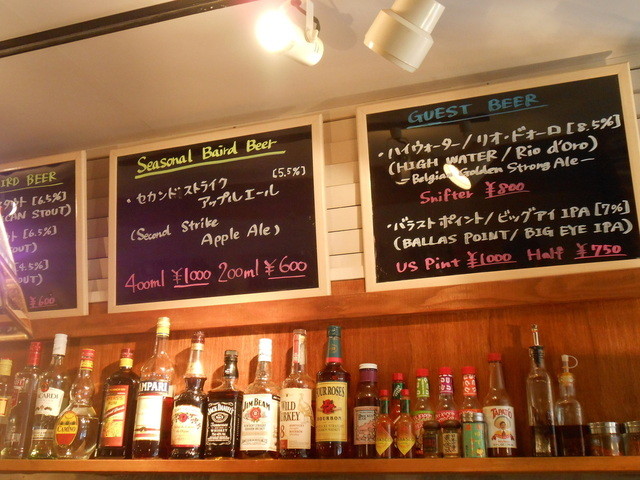 IRD BEER
[6.5%]
CAN STOUT)
6.5%]
OUT)
4.5%]
OUT)
¥600
Seasonal Baird Beer
・セカンドストライク [5.5%]
アップルエール
(Second Strike
Apple Ale)
400ml ¥1000 200ml ¥600
GUEST BEER
・ハイウォーター/リオ・ドォーロ [8.5%]
(HIGH WATER / Rio d'Oro)
－Belgian Golden Strong Ale－
Snifter ¥800
・バラストポイント/ビッグアイ IPA [7%]
(BALLAS POINT / BIG EYE IPA)
US Pint ¥1000 Half ¥750
BACARDI
CAMINO
CAMPARI
JACK DANIEL'S
JIM BEAM
WILD
TURKEY
8
FOUR ROSES
BOURBON
TAPATIO